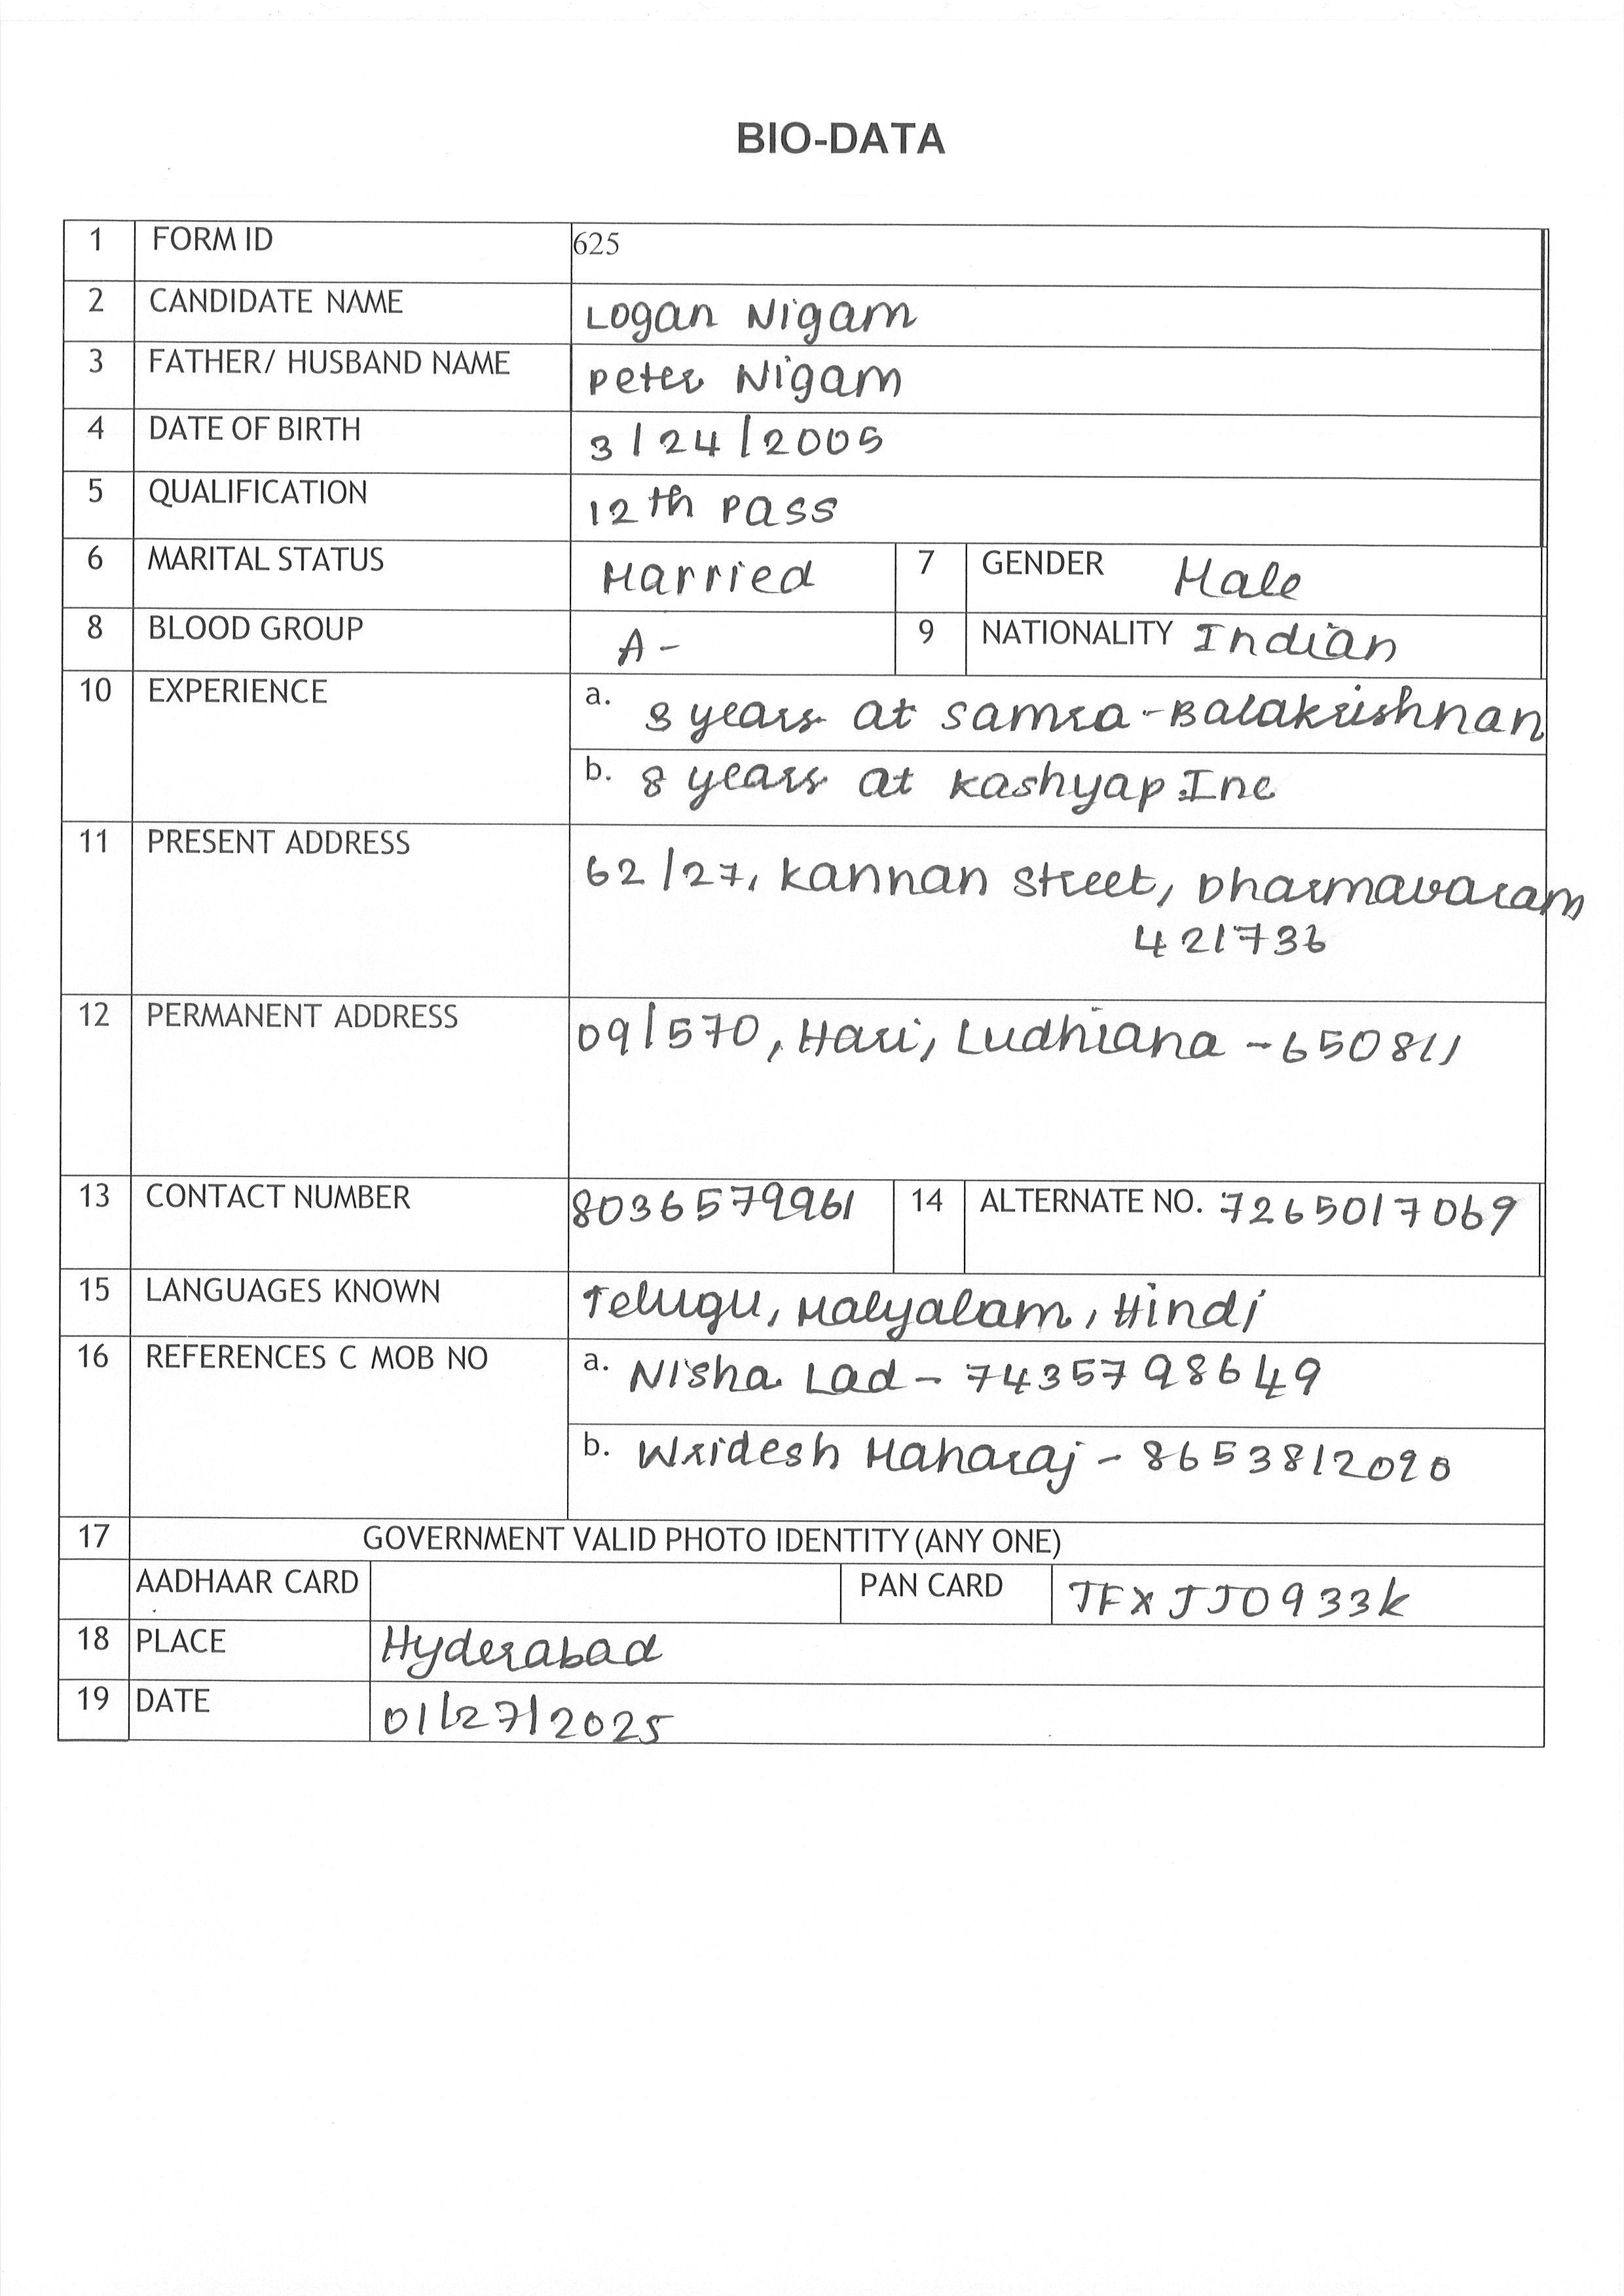 BIO-DATA
1 FORM ID 625
2 CANDIDATE NAME Logan Nigam
3 FATHER/ HUSBAND NAME Peter Nigam
4 DATE OF BIRTH 3/24/2005
5 QUALIFICATION 12th pass
6 MARITAL STATUS Married 7 GENDER Male
8 BLOOD GROUP A- 9 NATIONALITY Indian
10 EXPERIENCE a. 3 years at Samra-Balakrishnan
b. 8 years at Kashyap Inc
11 PRESENT ADDRESS 62/27, Kannan Street, Dharmavaram
421736
12 PERMANENT ADDRESS 09/570, Hari, Ludhiana - 650811
13 CONTACT NUMBER 8036579961 14 ALTERNATE NO. 7265017069
15 LANGUAGES KNOWN Telugu, Malyalam, Hindi
16 REFERENCES C MOB NO a. Nisha Lad - 7435798649
b. Wridesh Maharaj - 8653812090
17 GOVERNMENT VALID PHOTO IDENTITY (ANY ONE)
AADHAAR CARD PAN CARD JFXJJ0933K
18 PLACE Hyderabad
19 DATE 01/27/2025